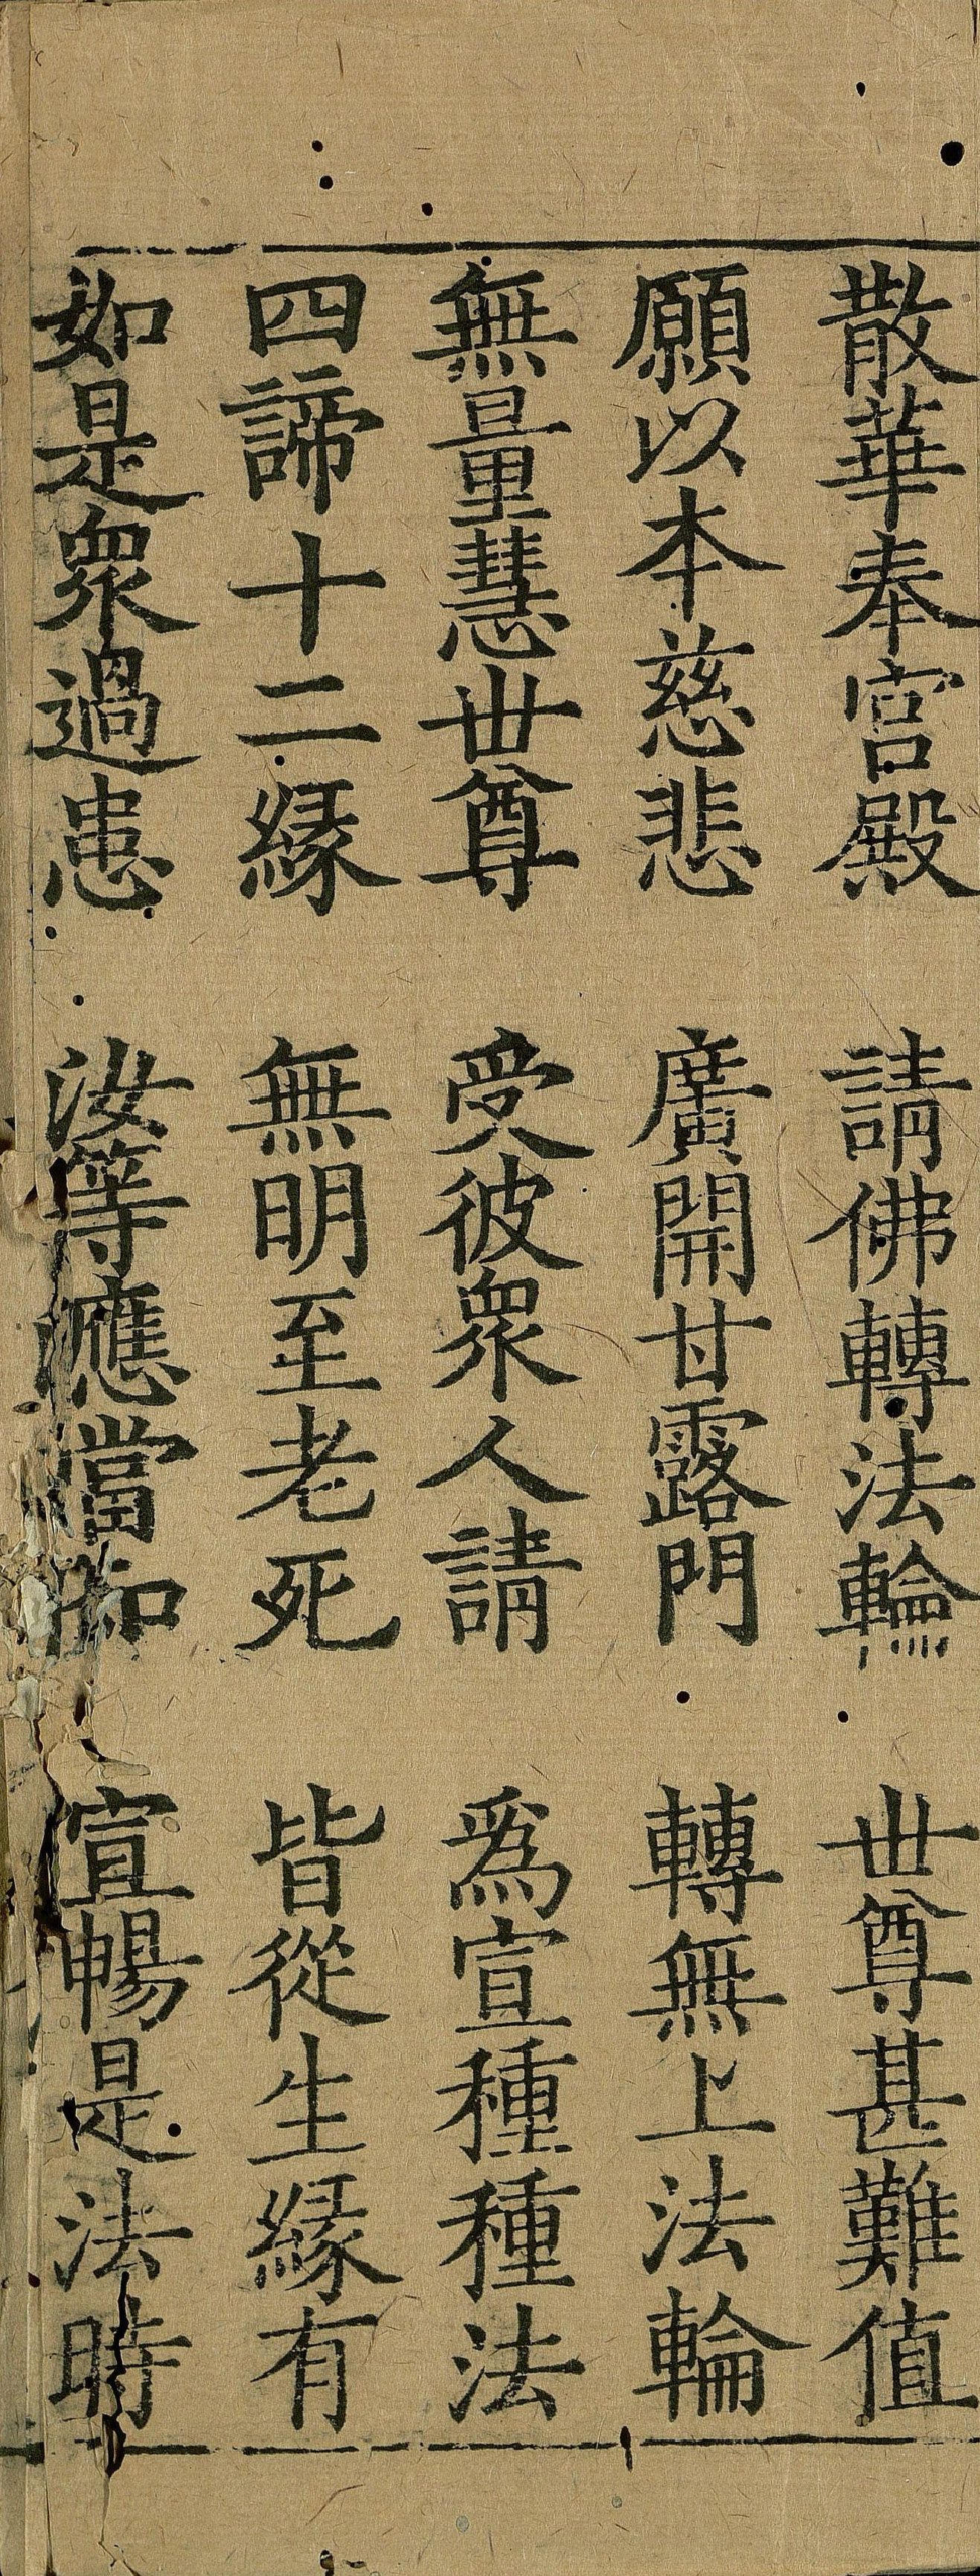 散華奉宮殿　請佛轉法輪　世尊甚難值
願以本慈悲　廣開甘露門　轉無上法輪
無量慧世尊　受彼衆人請　爲宣種種法
四諦十二緣　無明至老死　皆從生緣有
如是衆過患　汝等應當知　宣暢是法時